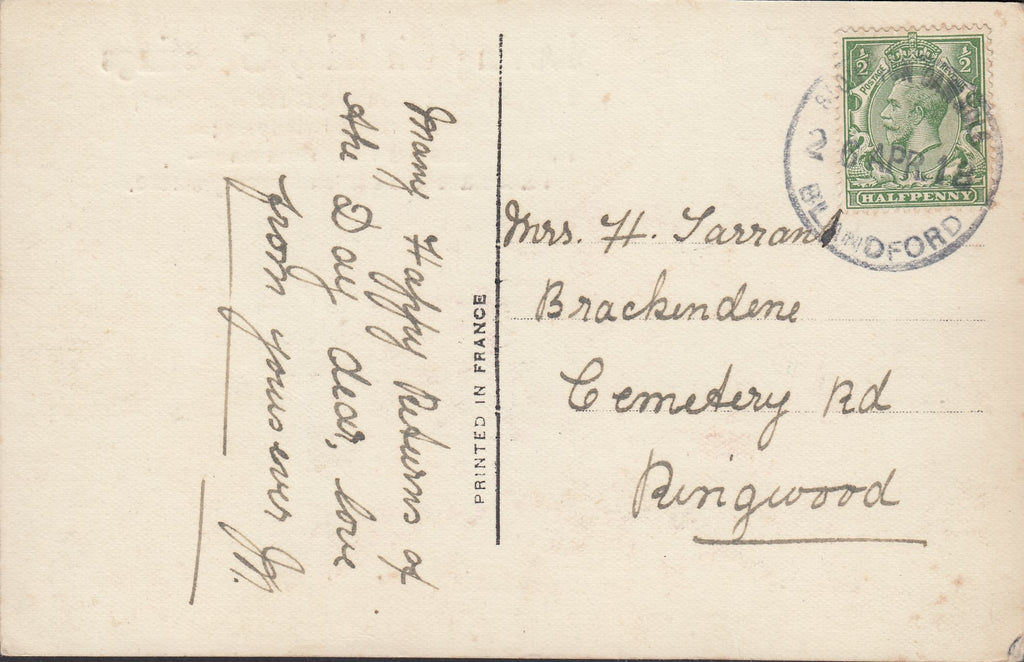 Many Happy Returns of
the Day dear, love
from yours ever
PRINTED IN FRANCE
Mrs. H. Tarrant
Brackendene
Cemetery Rd
Ringwood
½ ½
POSTAGE REVENUE
HALFPENNY
APR. 18
BLANDFORD